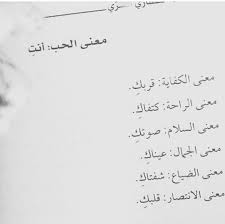 معنى الحب: أنتِ
معنى الكفاية: قربكِ.
معنى الراحة: كتفاكِ.
معنى السلام: صوتكِ.
معنى الجمال: عيناكِ.
معنى الضياع: شفتاكِ.
معنى الانتصار: قلبكِ.